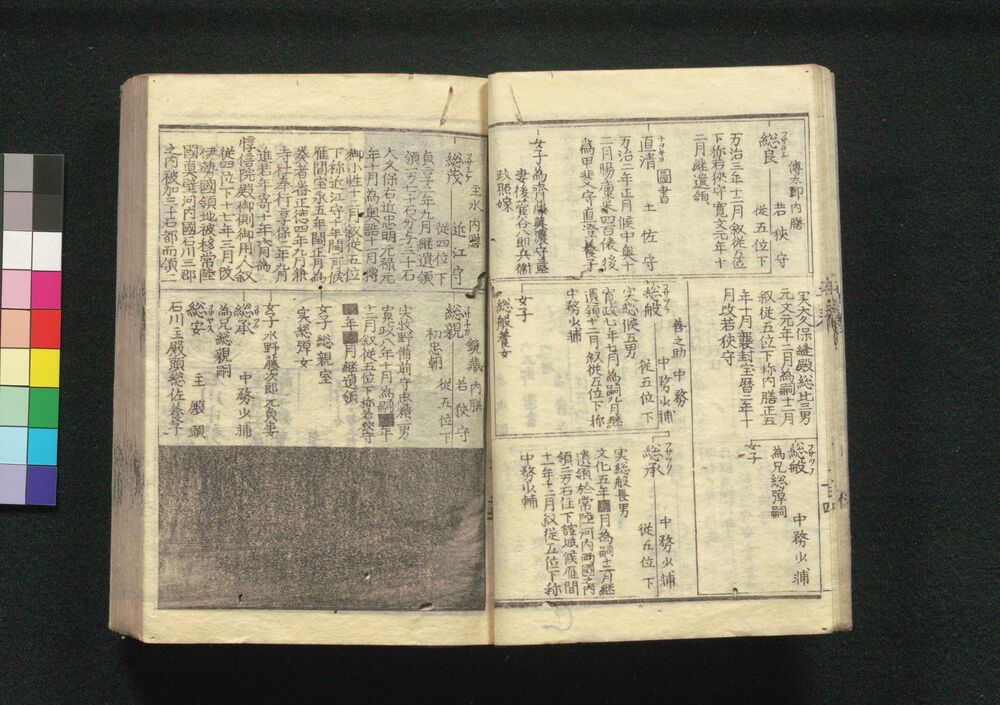 フサヨシ
総良
傳太郎 内膳
若狭守
従五位下
万治三年十二月叙従五位
下称若狭守寛文元年十
二月継遺領
ナヲキヨ
直清
圖書
土佐守
万治二年正月候中奥十
二月賜廩米四百俵後
為甲斐父守直澄養子
女子為齊藤美濃守盛
妻後菅谷八郎兵衛
政照嫁
実大久保縫殿総比三男
元文元年二月為嗣十二月
叙従五位下称内膳正五
年十月襲封宝暦二年十
月改若狭守
フサツク
総敏
中務少浦
為兄総弾嗣
女子
総般
善之助 中務
中務少浦
従五位下
実総候五男
寛政七年七月為嗣九月継
遺領十二月叙従五位下称
中務少浦
女子
総般養女
フサツク
総承
中務少浦
従五位下
実総般長男
文化五年 月為嗣十二月継
遺領於常陸河内両國之内
領二万石住下舘城候雁間
十一年十二月叙従五位下称
中務少輔
総茂
主水 内膳
近江守
従四位下
貞享二年九月継遺領
領二万二十石分子三千石
大久保右近忠明元禄元
年十月為奥詰十一月轉
御小性十二月叙従五位
下称近江守十年閏二月候
雁間宝永五年閏正月為
奏者番正徳四年九月兼
寺社奉行享保二年九月
進若年寄十年六月為
惇信院殿御側御用人叙
従四位下十七年三月改
伊勢國領地被移常陸
國真壁河内國石川三郡
之内被加三千石都而領二
総親
鍋蔵 内膳
若狭守
初忠朝
従五位下
実牧野備前守忠精二男
寛政八年十月為嗣 年
十二月叙従五位下称若狭守
年 月継遺領
女子 総親室
実総弾女
女子 水野藤次郎元貞妻
総承
中務少浦
為兄総親嗣
総安
主殿頭
石川主殿頭総佐養子